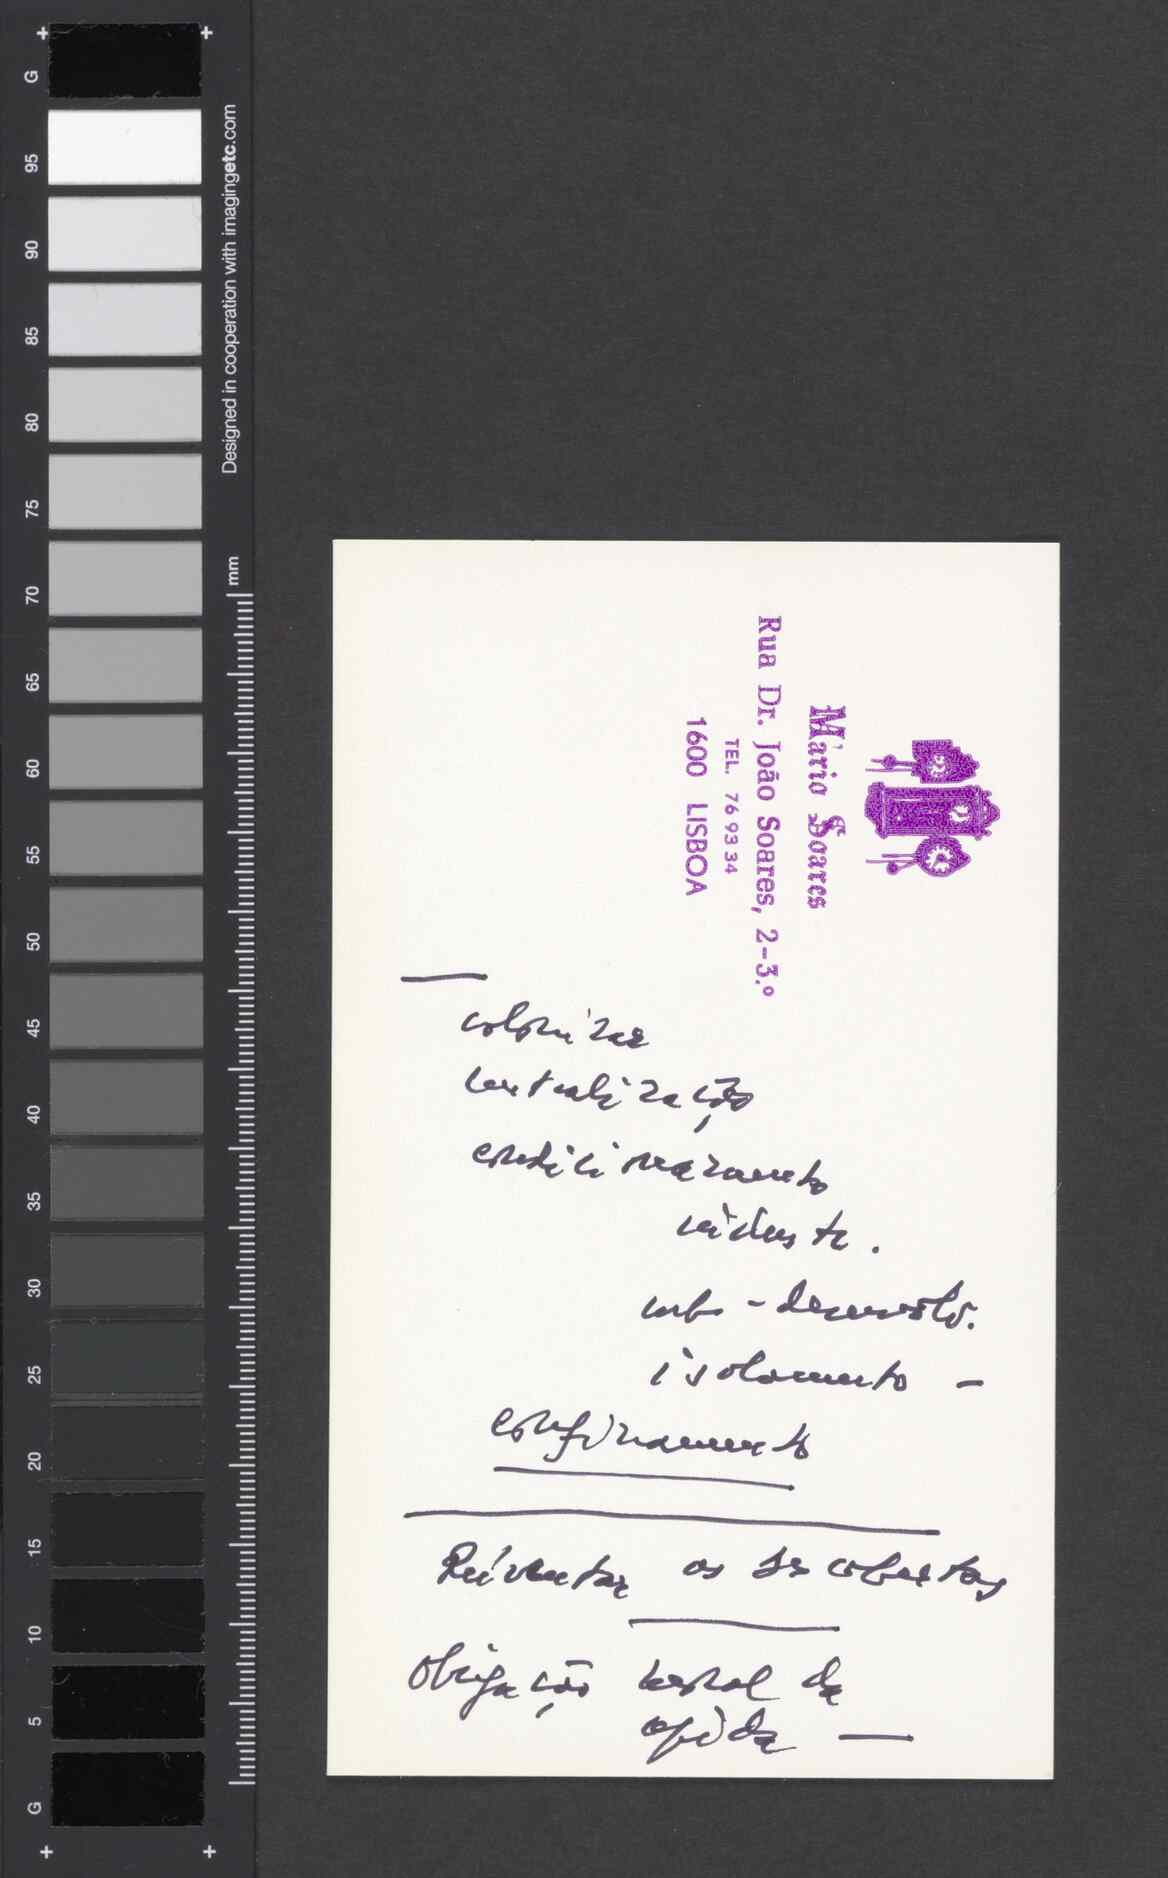 Mário Soares
Rua Dr. João Soares, 2-3.º
TEL. 76 93 34
1600 LISBOA
colonizar
centralização
condicionamento
industr.
sub-desenvolv.
isolamento —
confinamento
Reinventar as descobertas
obrigação da
—
Designed in cooperation with imagingetc.com
mm
G
95
90
85
80
75
70
65
60
55
50
45
40
35
30
25
20
15
10
5
G